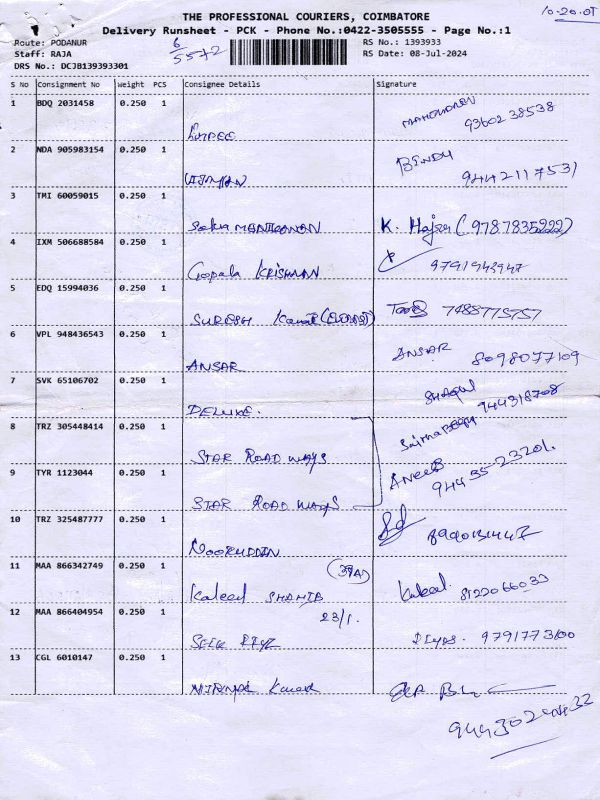 THE PROFESSIONAL COURIERS, COIMBATORE
10-20.07
Delivery Runsheet - PCK - Phone No.:0422-3505555 - Page No.:1
Route: PODANUR
6
RS No.: 1393933
Staff: RAJA
5572
RS Date: 08-Jul-2024
DRS No.: DCJB139393301
S No Consignment No Weight PCS Consignee Details Signature
1 BDQ 2031458 0.250 1
93602 38538
2 NDA 905983154 0.250 1 BINDU
94421 17531
3 TMI 60059015 0.250 1 K. Hajra (9787835222)
4 IXM 506688584 0.250 1 Gopala KRISHNAN
9791943947
5 EDQ 15994036 0.250 1 SURESH Kumar
7488775757
6 VPL 948436543 0.250 1 ANSAR ANSAR
8098077109
7 SVK 65106702 0.250 1 DELUXE.
944318708
8 TRZ 305448414 0.250 1 STAR ROAD WAYS
9 TYR 1123044 0.250 1 STAR ROAD WAYS ANEEB
94435-23201.
10 TRZ 325487777 0.250 1 NOORUDDIN
11 MAA 866342749 0.250 1 Kaleel SHAHIB (39A) Kaleel.
12 MAA 866404954 0.250 1 23/1.
9791773100
13 CGL 6010147 0.250 1 NIRMAL Kumar